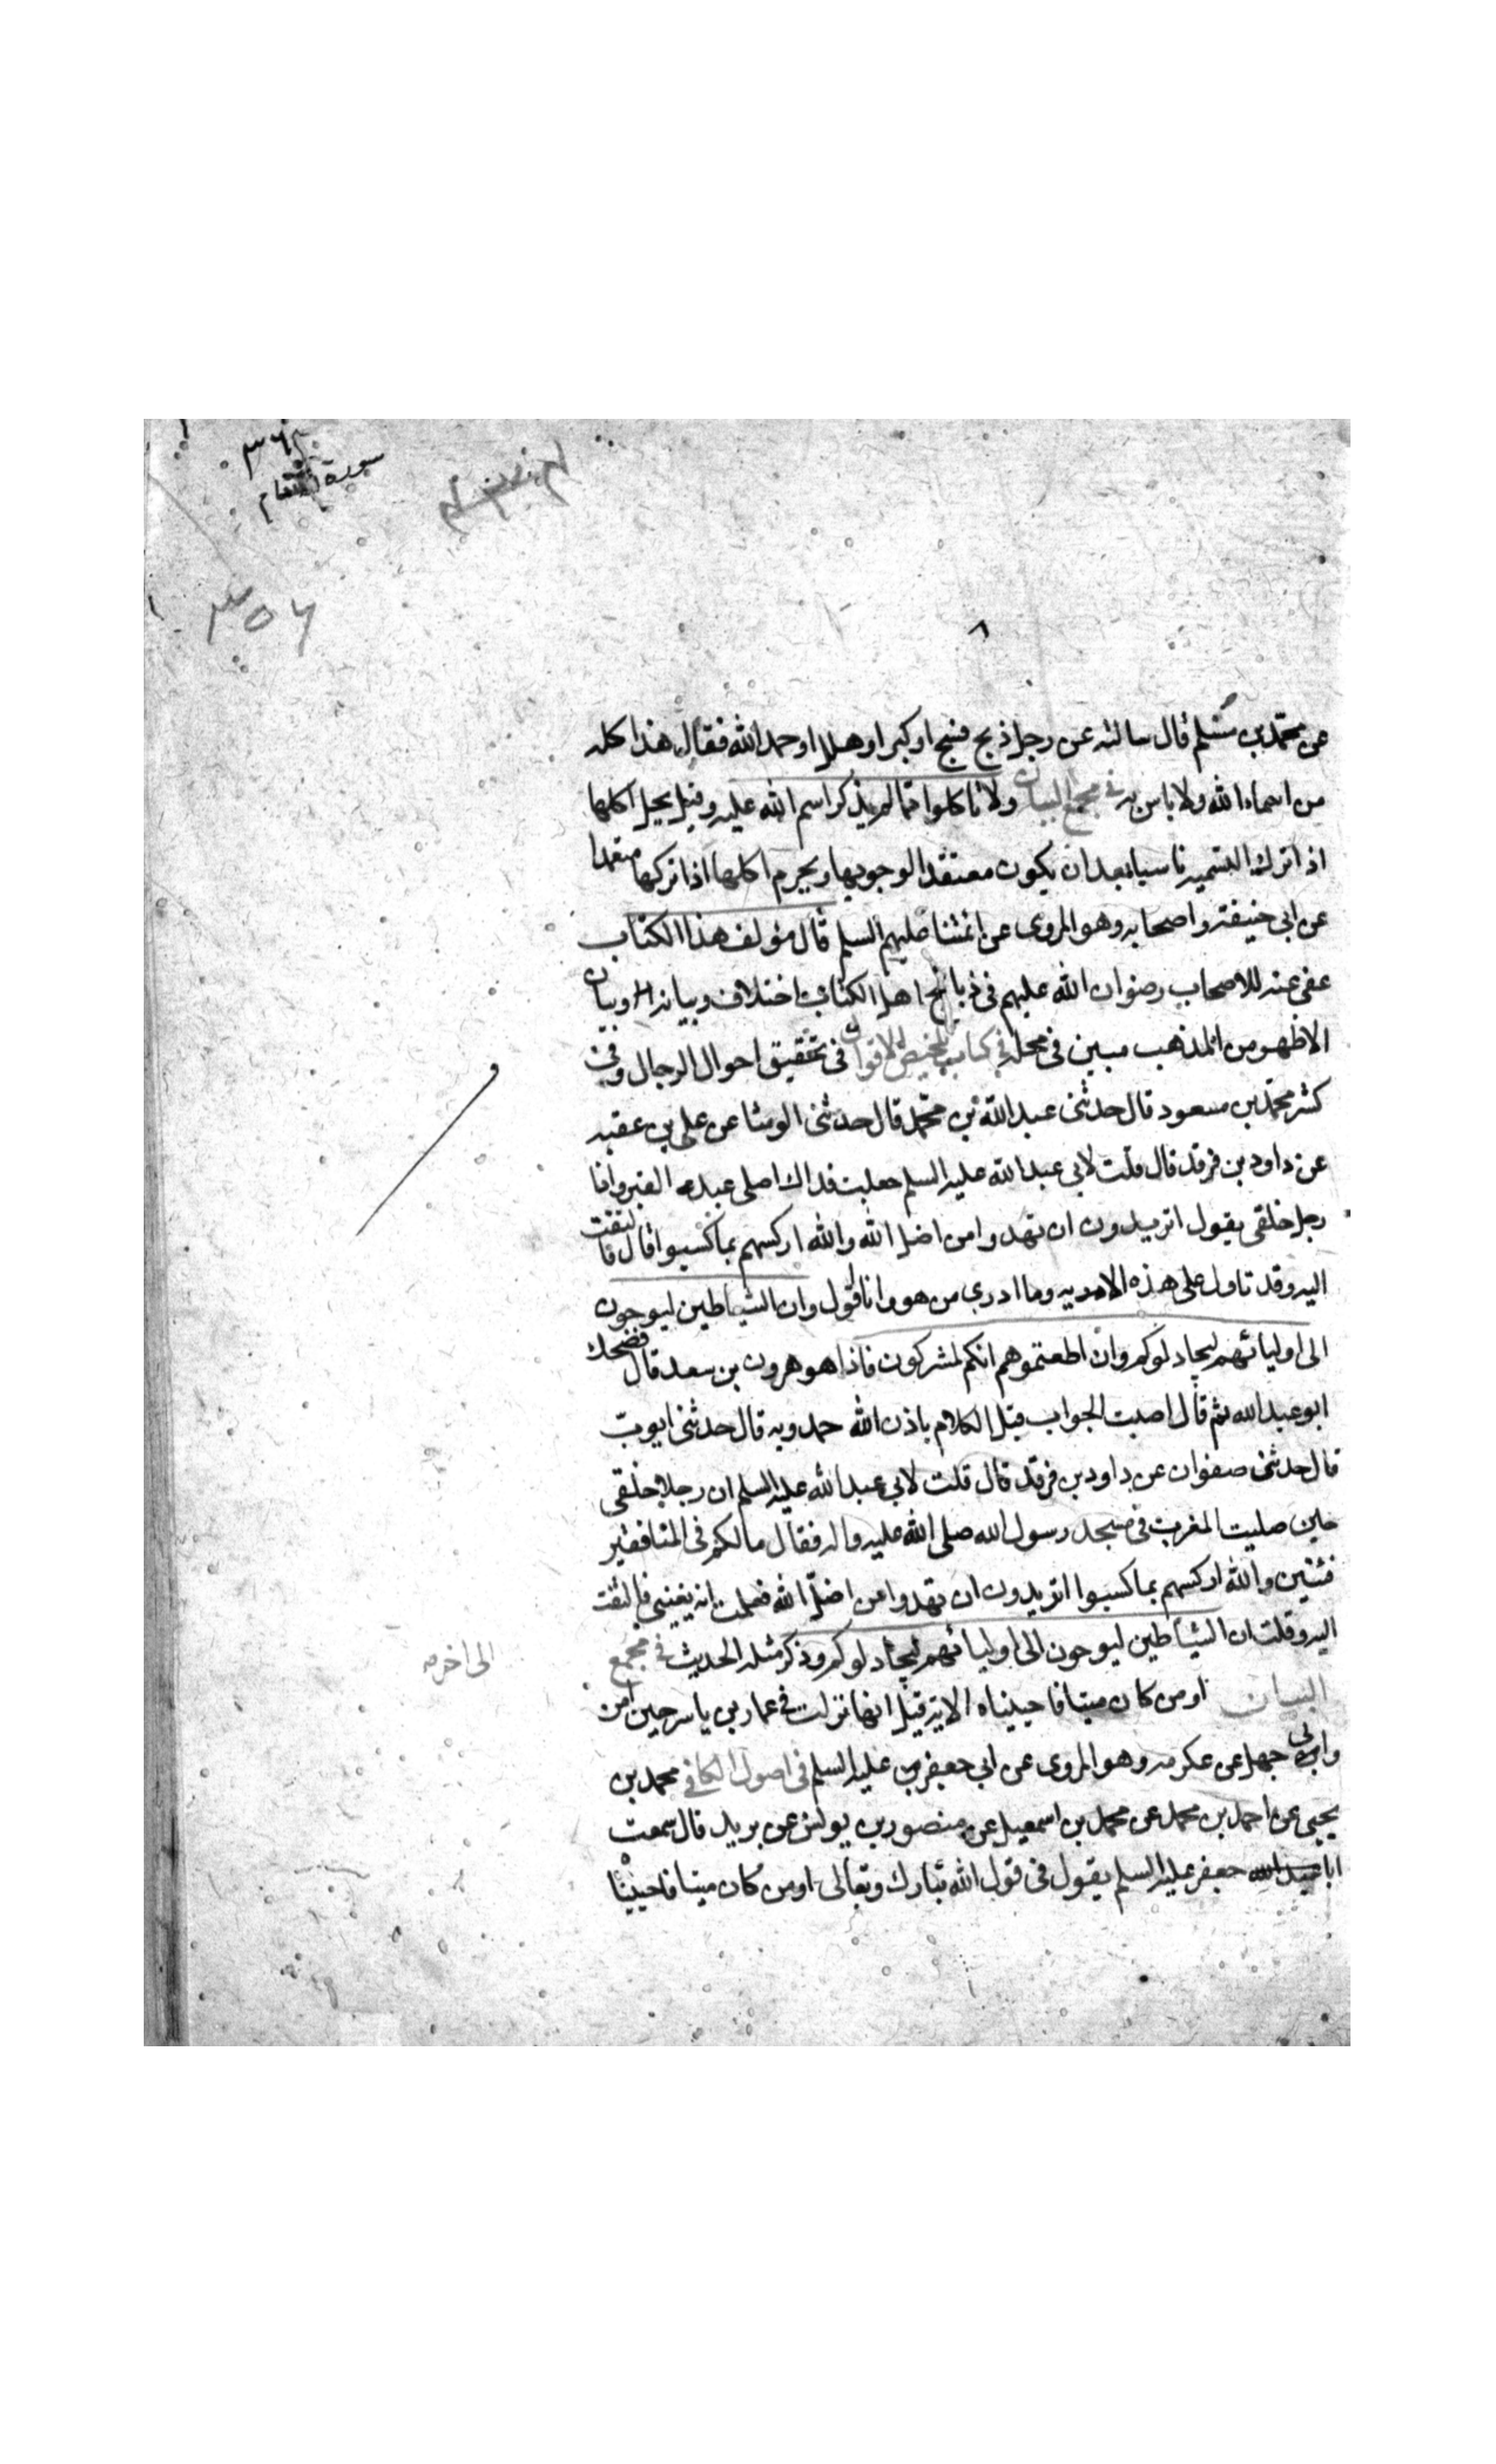 سورة الانعام
عن محمد بن مسلم قال سالته عن رجل ذبح فسبح او كبر او هلل او حمد الله فقال هذا كله
من اسماء الله ولا باس به في مجمع البيان ولا تاكلوا مما لم يذكر اسم الله عليه وقيل يحل اكلها
اذا ترك التسمية ناسيا بعد ان يكون معتقدا لوجوبها ويحرم اكلها اذا تركها متعمدا
عن ابي حنيفة واصحابه وهو المروى عن ائمتنا عليهم السلم قال مؤلف هذا الكتاب
عفى عنه للاصحاب رضوان الله عليهم فى ذبائح اهل الكتاب اختلاف وبيانه وبيان
الاظهر من المذهب مبين فى محله في كتاب تلخيص الاقوال فى تحقيق احوال الرجال وفى
كش محمد بن مسعود قال حدثنى عبد الله بن محمد قال حدثنى الوشا عن على بن عقبه
عن داود بن فرقد قال قلت لابى عبد الله عليه السلم جعلت فداك اصلى عند القبر وانا
رجل خلفى يقول اتريدون ان تهدوا من اضل الله والله اركسهم بما كسبوا قال فالتفت
اليه وقد تاول على هذه الاية وما ادرى من هو وانا اقول وان الشياطين ليوحون
الى اوليائهم ليجادلوكم وان اطعتموهم انكم لمشركون فاذا هو هرون بن سعد قال فضحك
ابو عبد الله ثم قال اصبت الجواب قبل الكلام باذن الله حمدويه قال حدثنى ايوب
قال حدثنى صفوان عن داود بن فرقد قال قلت لابى عبد الله عليه السلم ان رجلا خلفى
حين صليت المغرب فى مسجد رسول الله صلى الله عليه واله فقال ما لكم فى المنافقين
فئتين والله اركسهم بما كسبوا اتريدون ان تهدوا من اضل الله فعلمت انه يعنينى فالتفت
اليه وقلت ان الشياطين ليوحون الى اوليائهم ليجادلوكم وذكر مثله الحديث في مجمع
الى اخره
البيان او من كان ميتا فاحييناه الاية قيل انها نزلت فى عمار بن ياسر حين امن
وابى جهل عن عكرمه وهو المروى عن ابى جعفر عليه السلم فى اصول الكافي محمد بن
يحيى عن احمد بن محمد عن محمد بن اسمعيل عن منصور بن يونس عن بريد قال سمعت
ابا جعفر عليه السلم يقول فى قول الله تبارك وتعالى او من كان ميتا فاحييناه